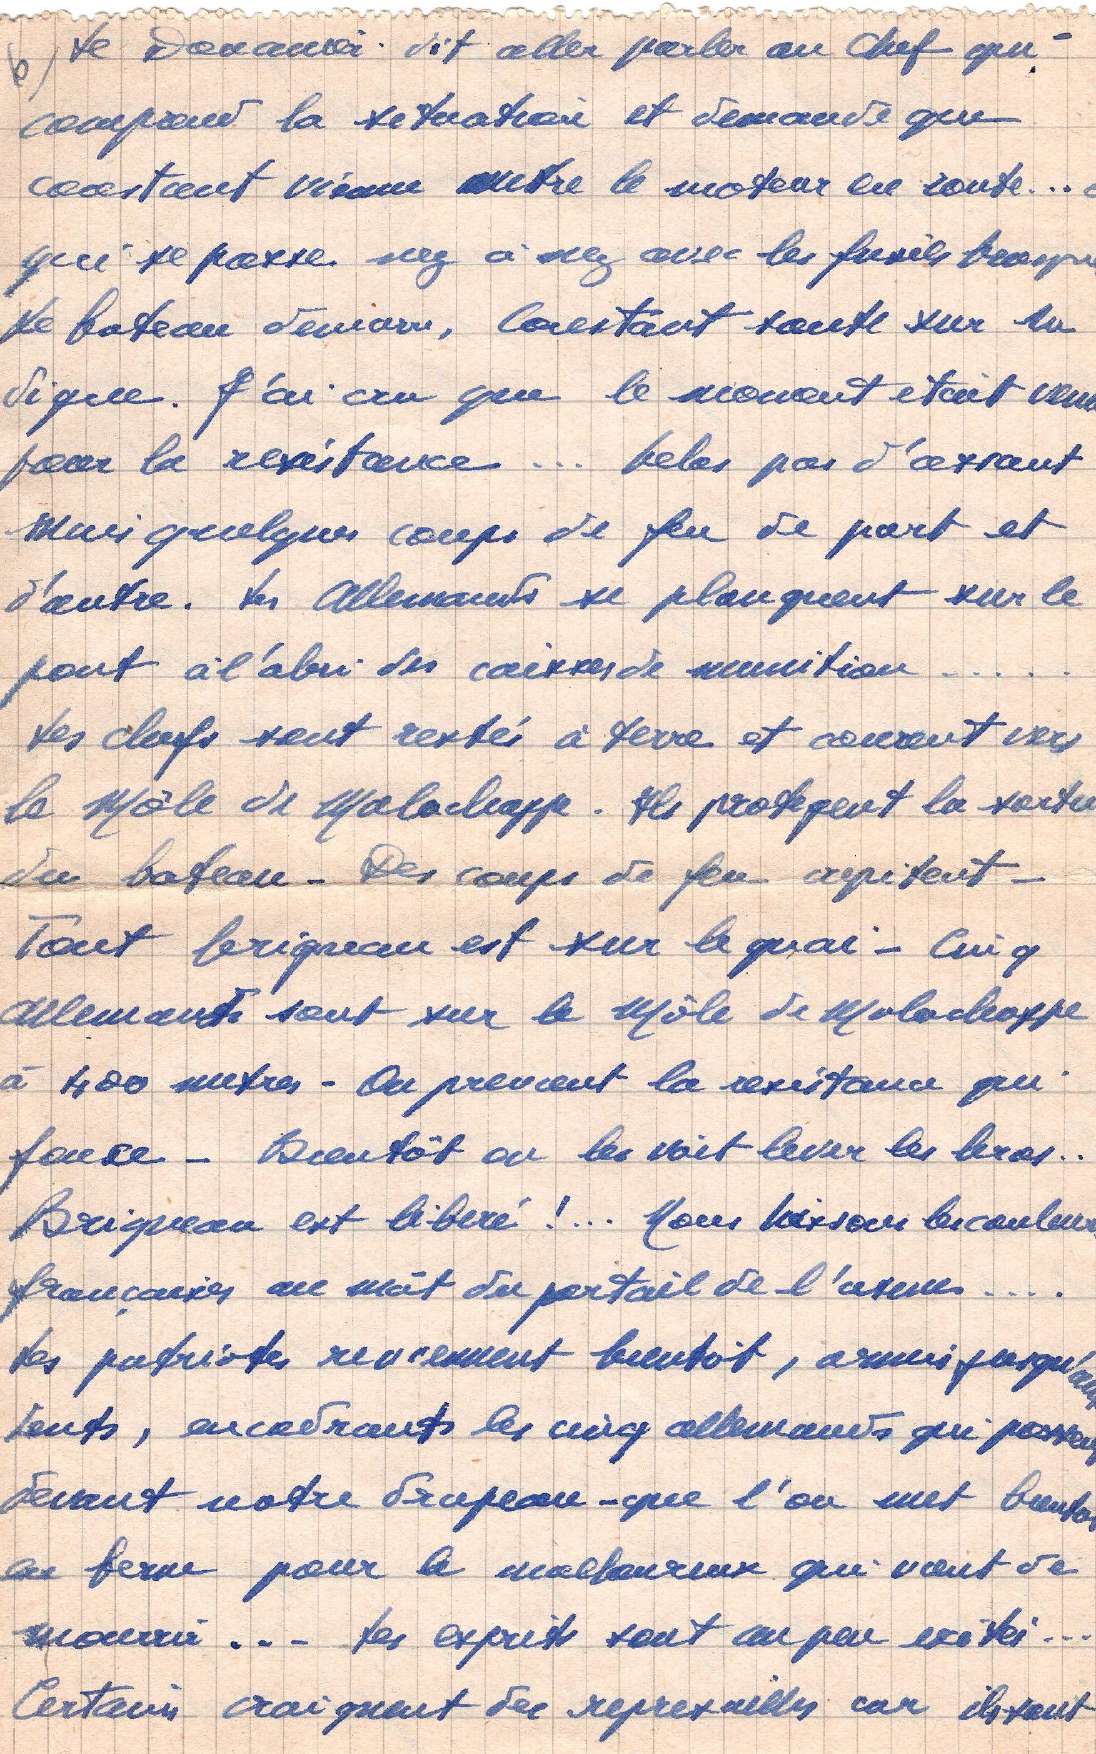 6) Le Douanier dit aller parler au Chef qui
comprend la situation et demande que
Constant vienne mettre le moteur en route... ce
qui se passe. nez à nez avec les fusils braqués
Le bateau démarre, Constant saute sur la
digue. J'ai cru que le moment était venu
pour la resistance ... helas pas d'assaut
Mais quelques coups de feu de part et
d'autre. Les Allemands se planquent sur le
pont à l'abri des caisses de munition .....
Les chefs sont restés à terre et courent vers
le Môle de Malachappe. Ils protegent la sortie
du bateau - Des coups de feu crepitent -
Tout brigneau est sur le quai - Cinq
Allemands sont sur le Môle de Malachappe
à 400 metres - On previent la resistance qui
fonce - Bientôt on les voit lever les bras..
Brigneau est libéré !... Nous hissons les couleurs
françaises au mât du portail de l'usine ....
Les patriotes reviennent bientôt, armés jusqu'aux
dents, encadrants les cinq allemands qui passent
devant notre drapeau - que l'on met bientot
en berne pour le malheureux qui vient de
mourrir ... Les esprits sont un peu exités ...
Certains craignent des represailles car ils sont